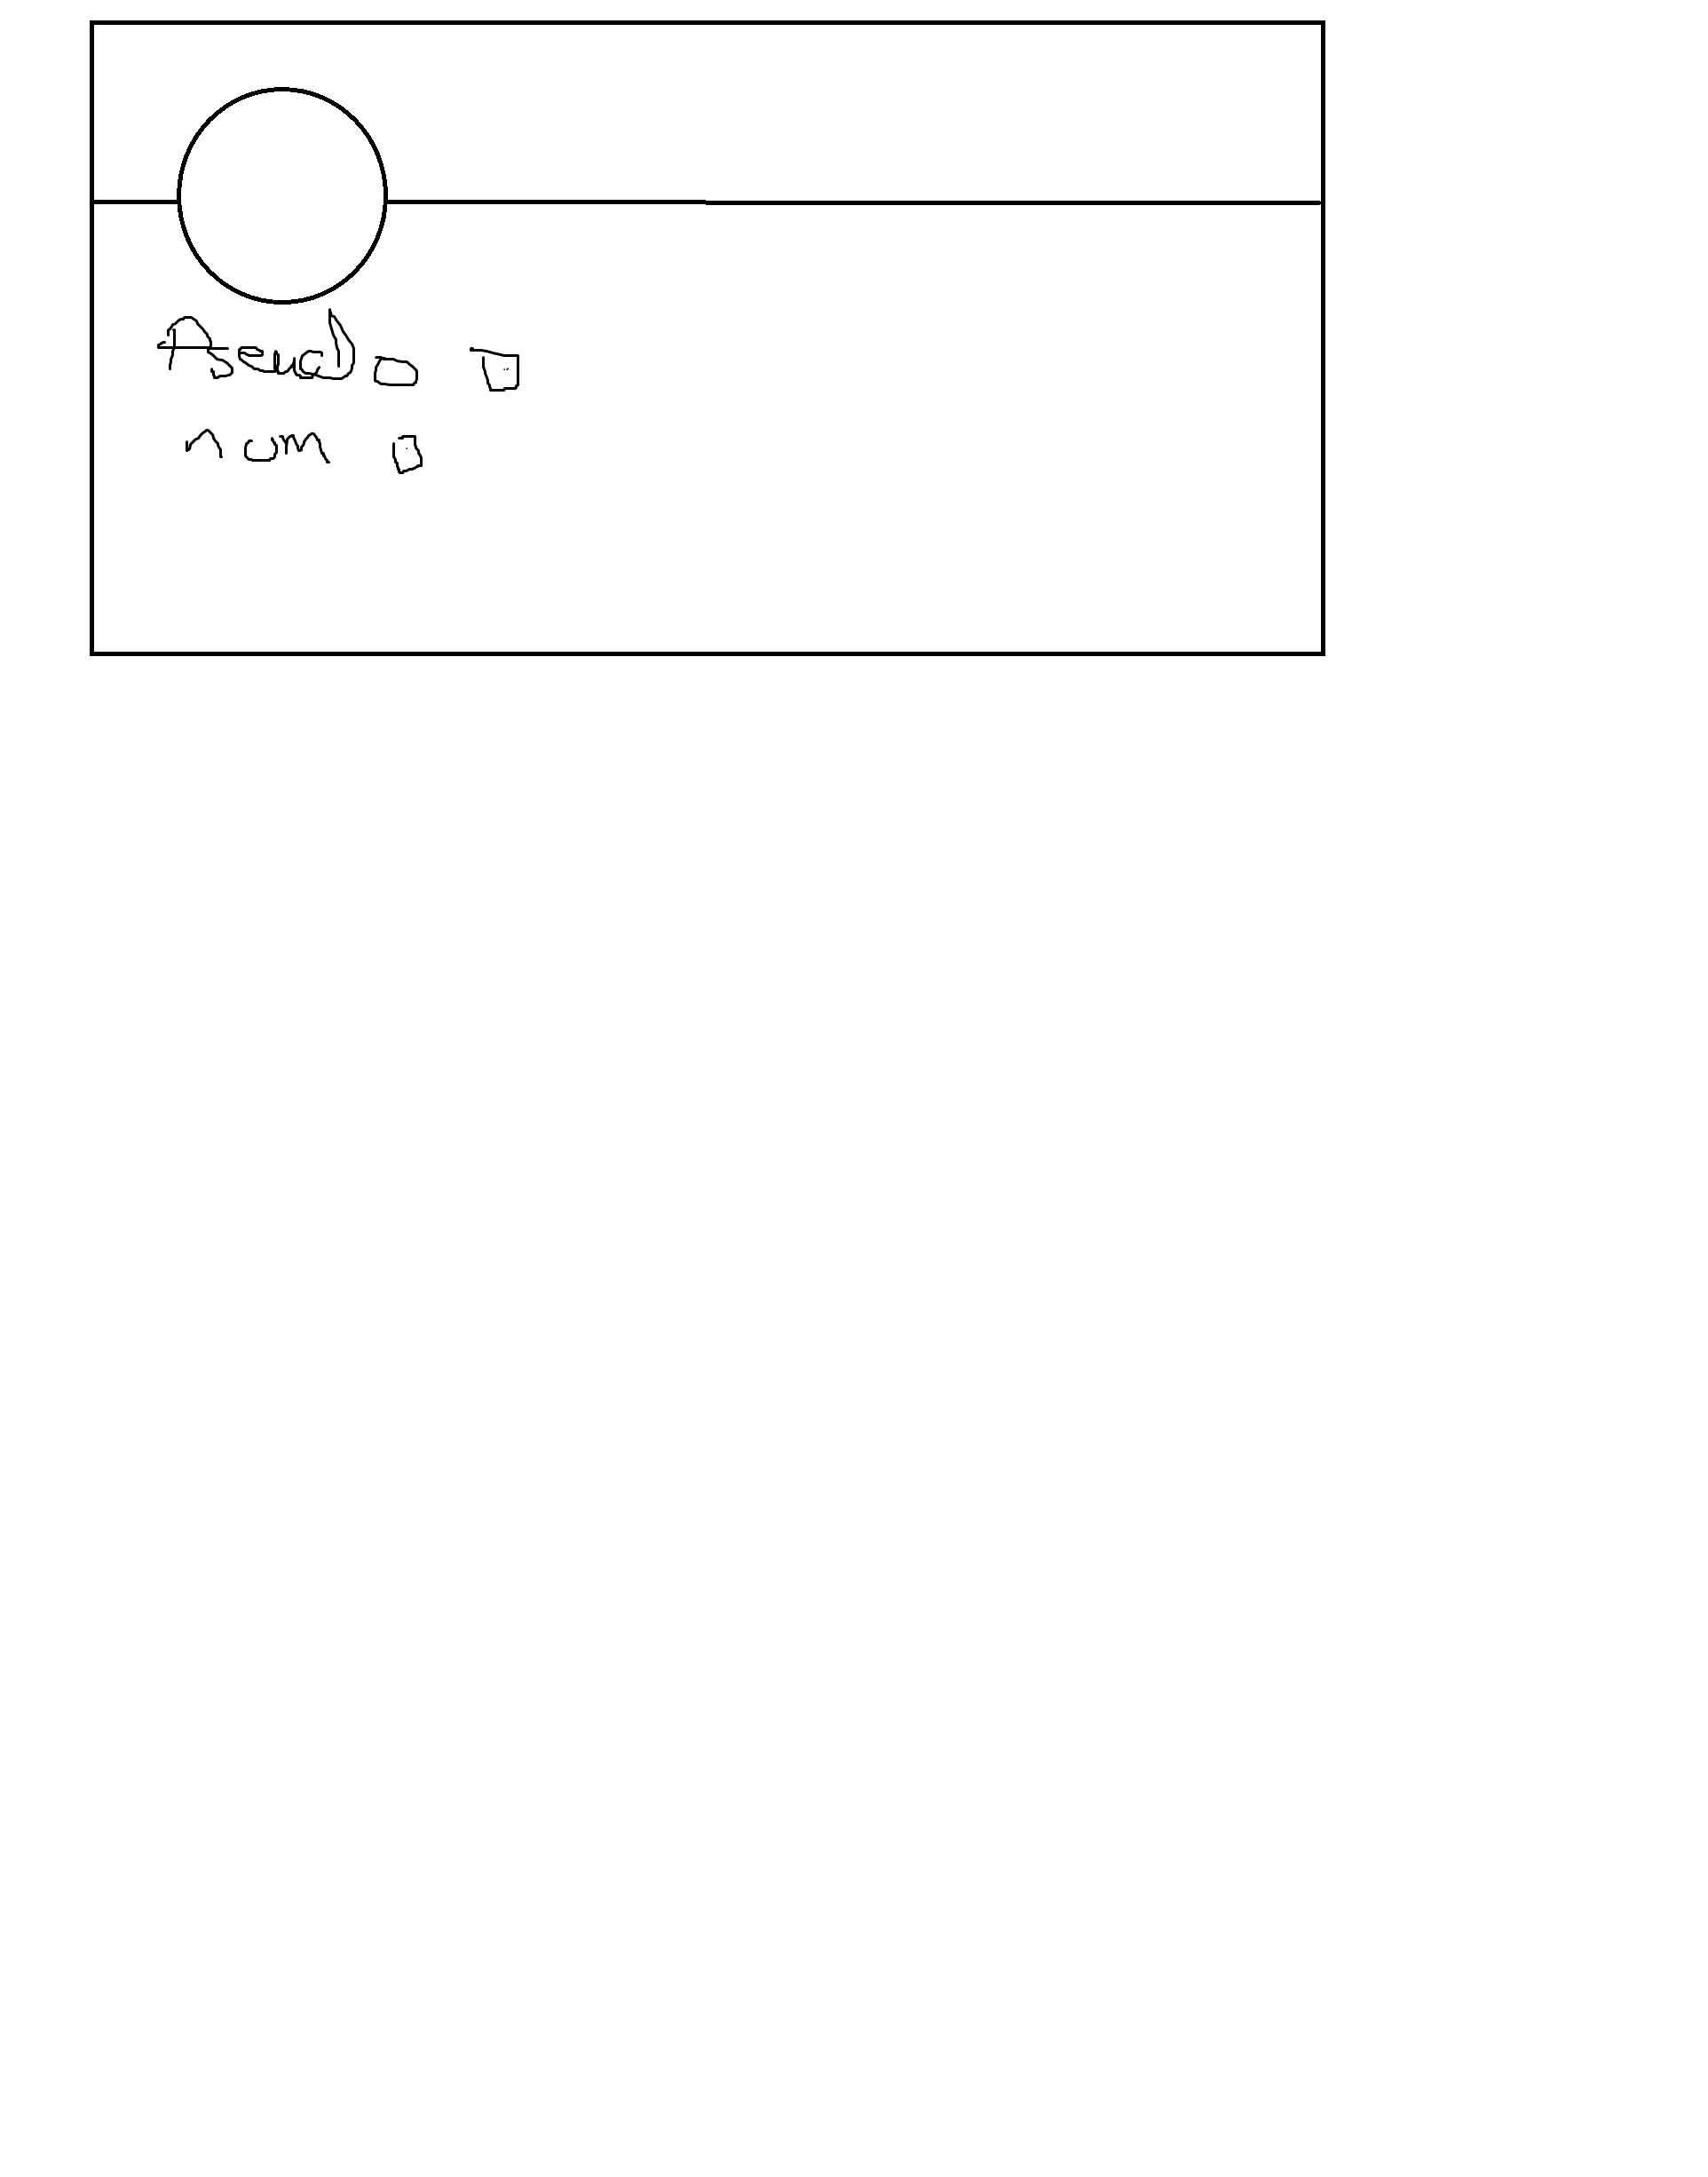 Pseudo
nom